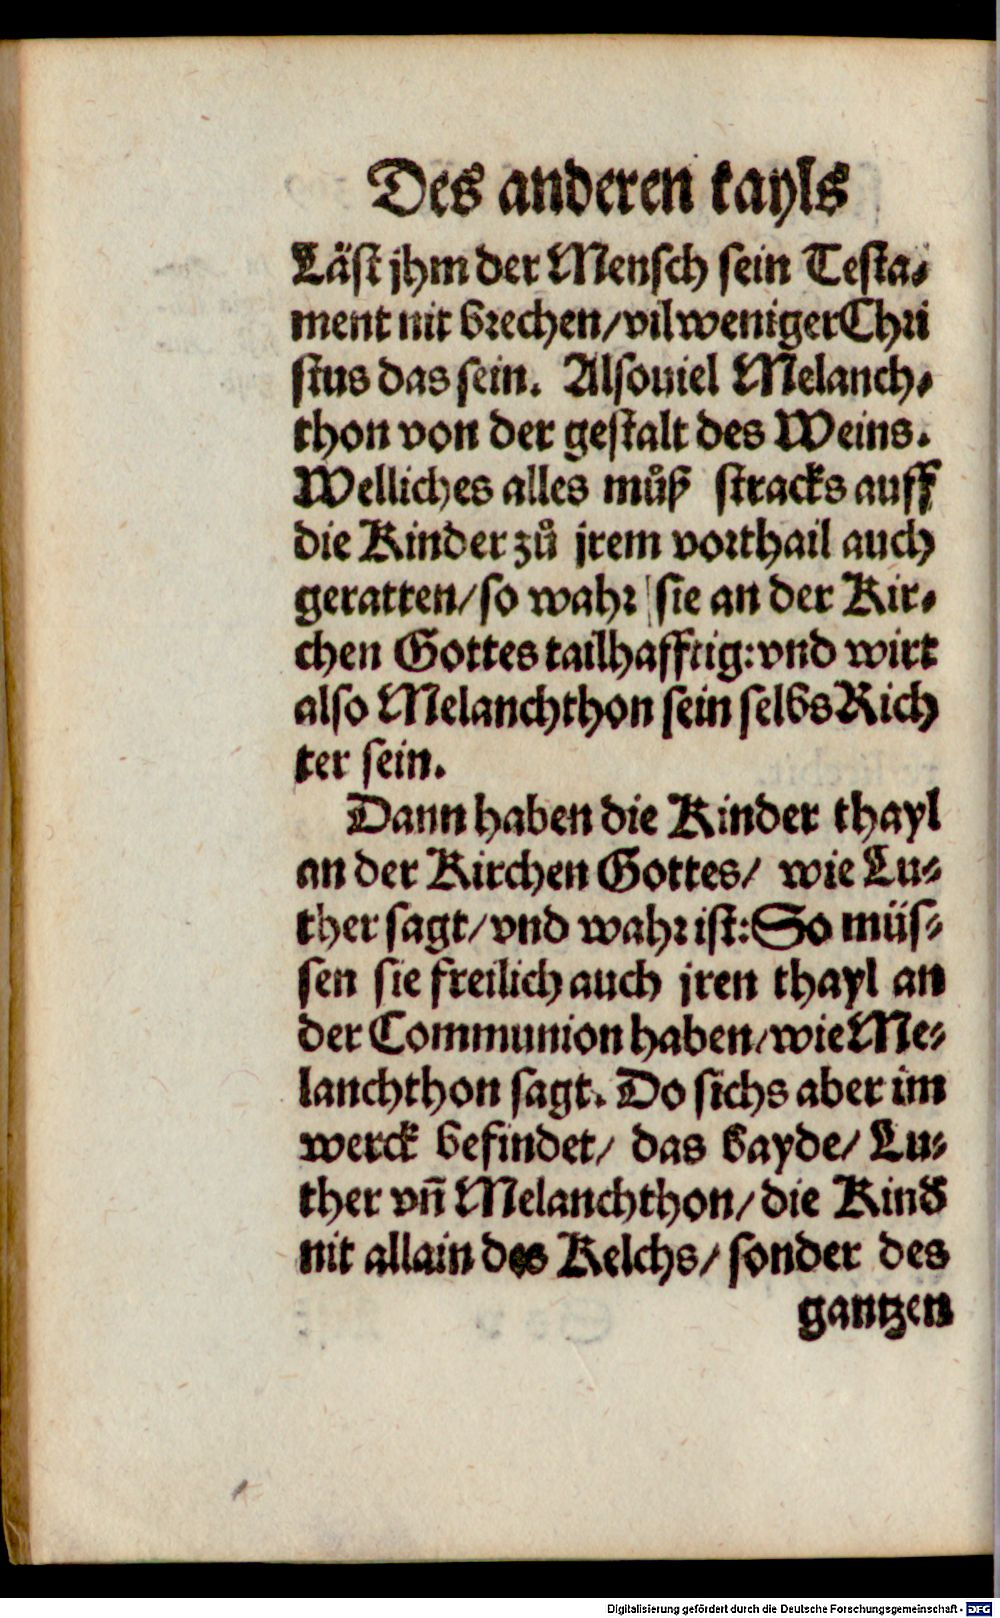 Des anderen tayls
Läſt jhm der Menſch ſein Teſta⸗
ment nit brechen/vil weniger Chri
ſtus das ſein. Alſouiel Melanch⸗
thon von der geſtalt des Weins.
Welliches alles můß ſtracks auff
die Kinder zů jrem vorthail auch
geratten/ſo wahr ſie an der Kir⸗
chen Gottes tailhafftig: vnd wirt
alſo Melanchthon ſein ſelbs Rich
ter ſein.
Dann haben die Kinder thayl
an der Kirchen Gottes/ wie Lu⸗
ther ſagt/vnd wahr iſt: So müſ⸗
ſen ſie freilich auch jren thayl an
der Communion haben/wie Me⸗
lanchthon ſagt. Do ſichs aber im
werck befindet/ das bayde/ Lu⸗
ther vn̄ Melanchthon/die Kind
nit allain des Kelchs/ ſonder des
gantzen
Digitalisierung gefördert durch die Deutsche Forschungsgemeinschaft - DFG